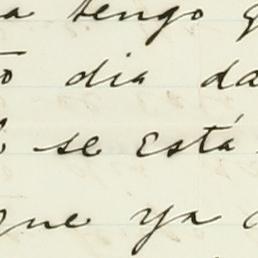 a tengo
dia da
se está
que ya